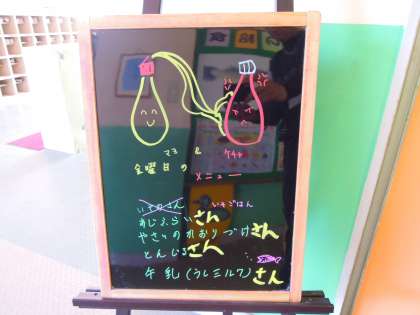 マヨ & ケチャ
金曜日の
メニュー
いそごはん
あじふらいさん
やさいのかおりづけさん
とんじるさん
牛乳(うしミルク)さん